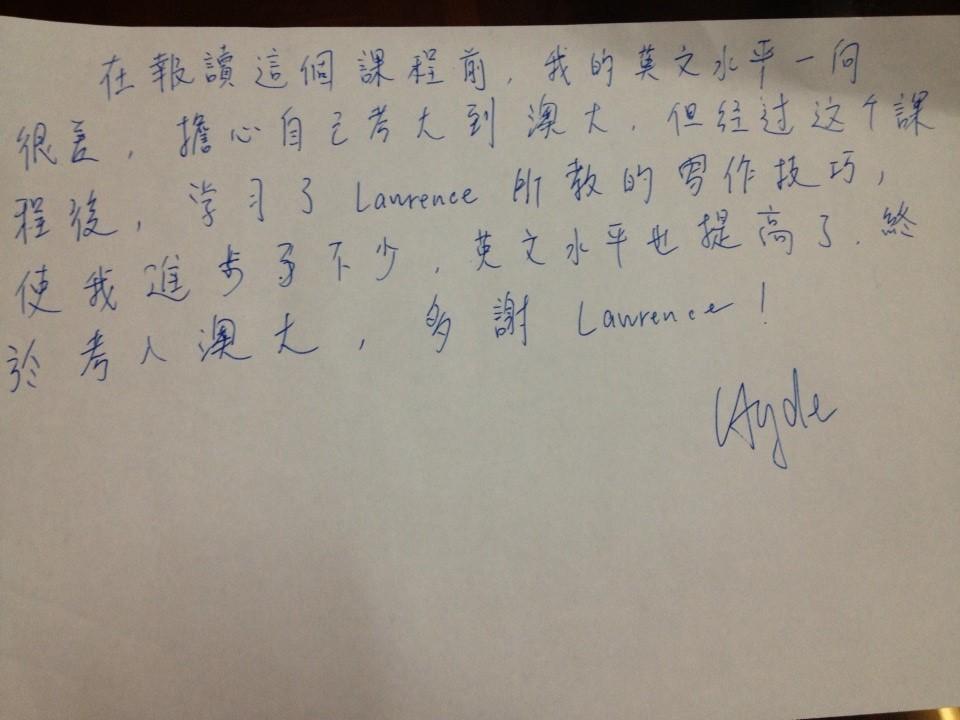 在報讀這個課程前，我的英文水平一向
很差，擔心自己考大到澳大，但经过这个課
程後，学习了Lawrence所教的寫作技巧，
使我進步了不少，英文水平也提高了，終
於考入澳大，多謝Lawrence！
Hyde